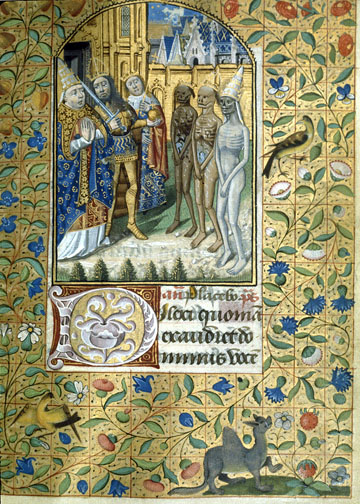 añ Placebo. ps
DIlexi quoniā
exaudiet do
minus voce